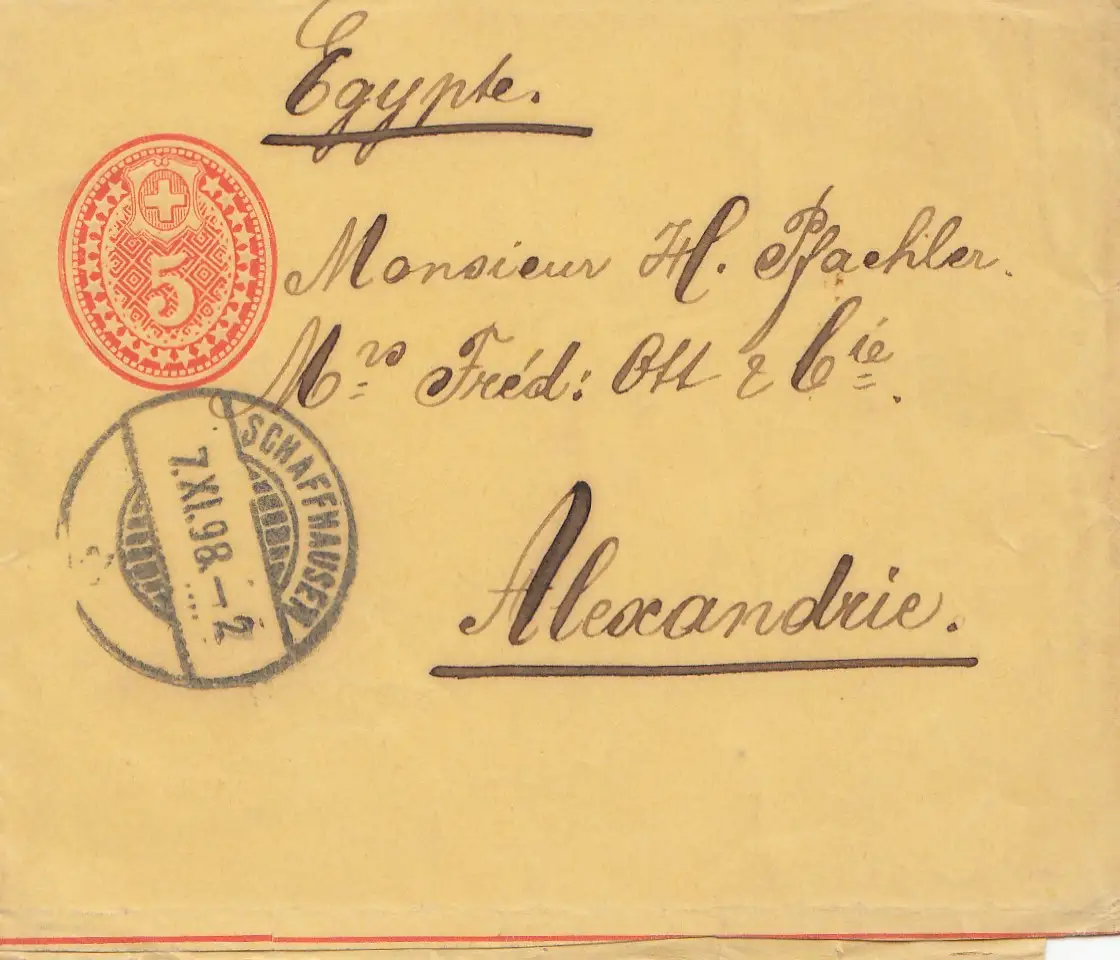 Egypte.
5
Monsieur H. Pfaehler.
Mrs Fréd: Ott & Cie.
SCHAFFHAUSEN
7.XI.98.-2
Alexandrie.